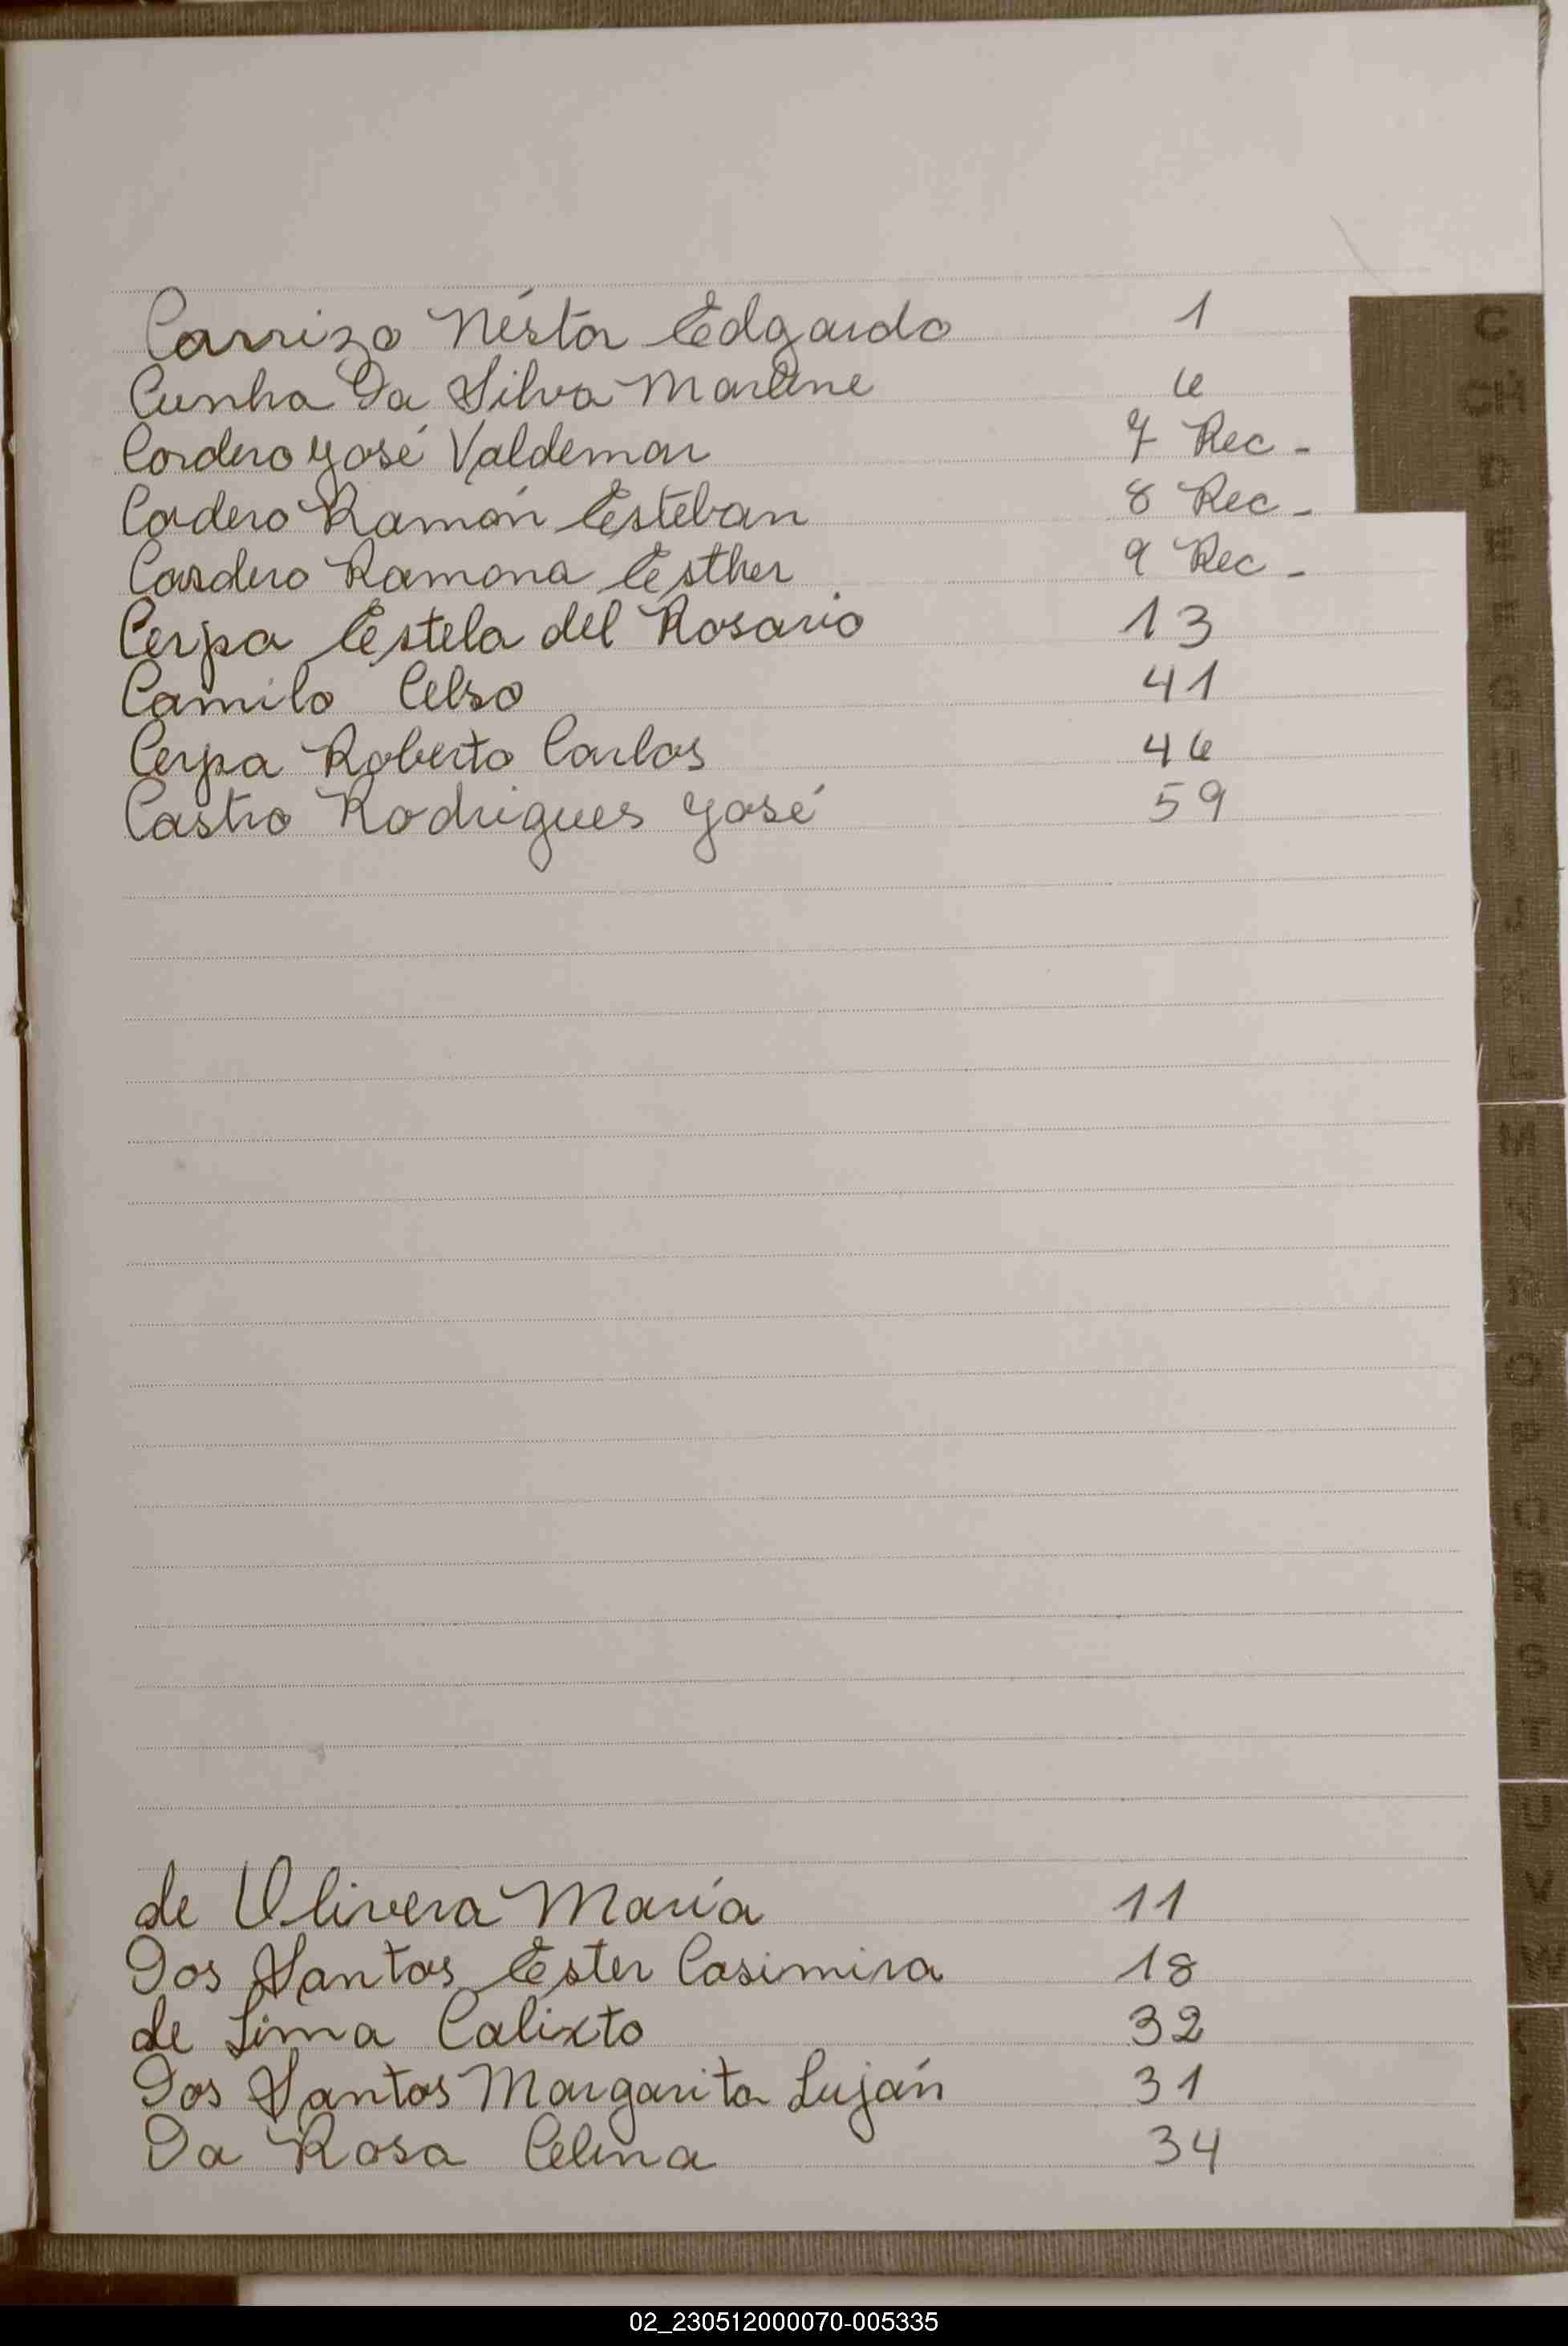 Carrizo Néstor Edgardo 1
Cunha Da Silva Marlene 6
Cordero José Valdemar 7 Rec -
Cordero Ramón Esteban 8 Rec -
Cordero Ramona Esther 9 Rec -
Cerpa Estela del Rosario 13
Camilo Celso 41
Cerpa Roberto Carlos 46
Castro Rodrigues José 59
de Olivera María 11
Dos Santos Ester Casimira 18
de Lima Calixto 32
Dos Santos Margarita Luján 31
Da Rosa Celina 34
C
CH
D
E
F
G
H
M
N
O
P
Q
R
S
T
U
V
02_230512000070-005335